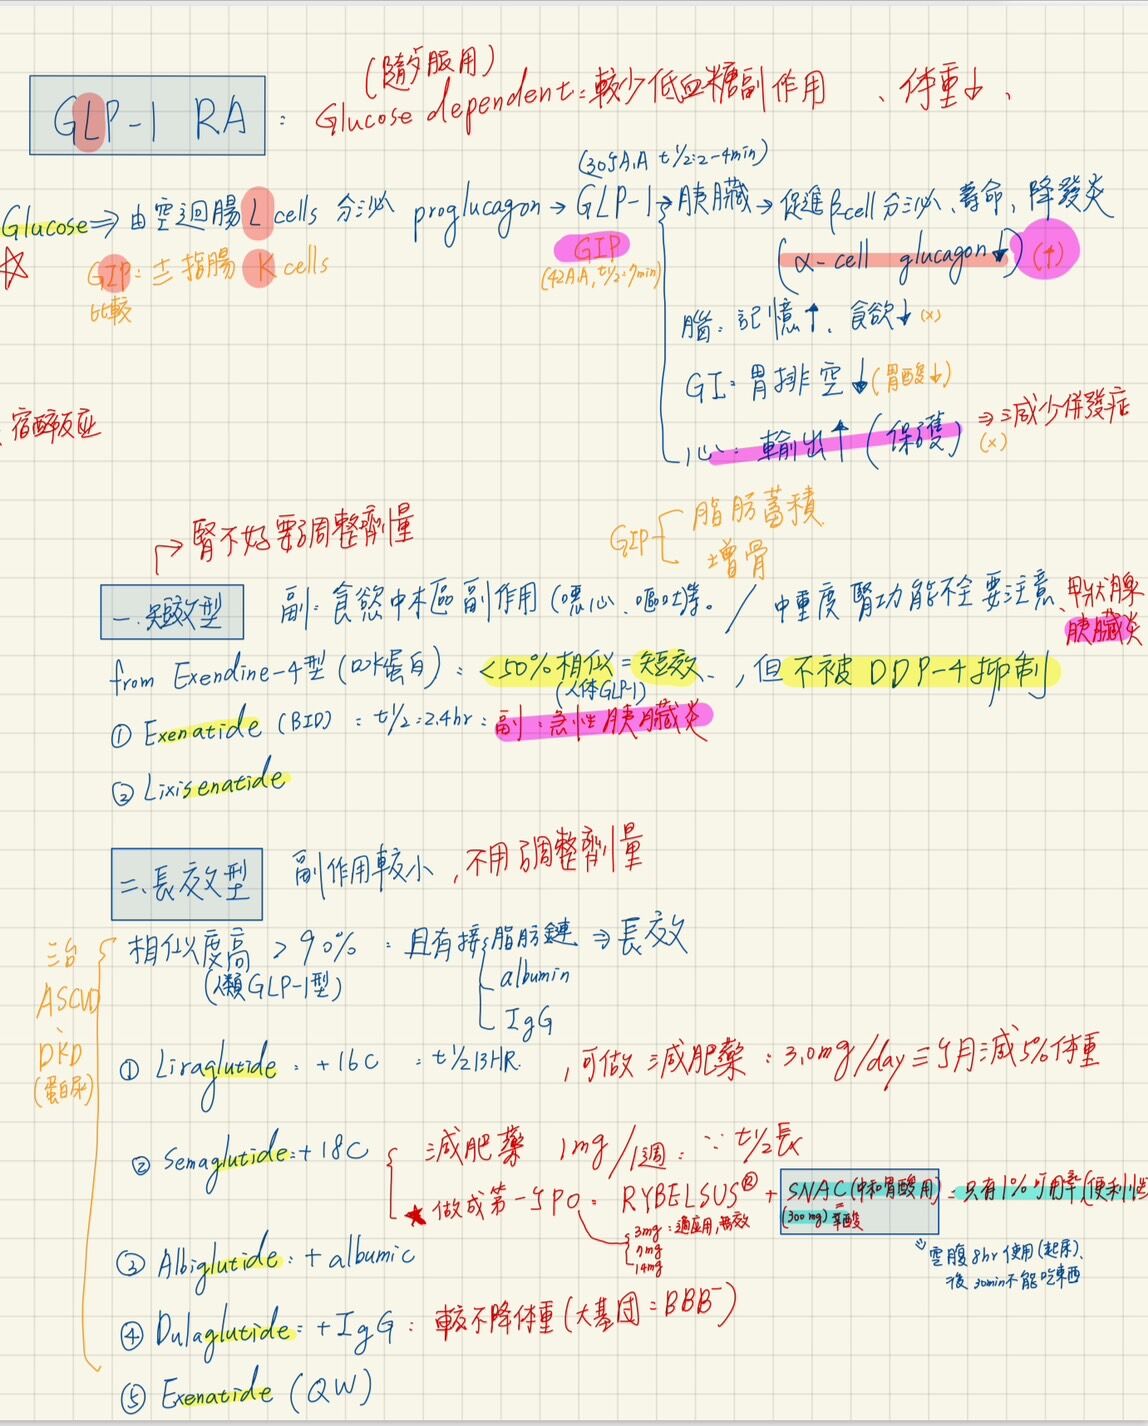 (隨夕服用)
GLP-1 RA : Glucose dependent:較少低血糖副作用 、体重↓、
(30個A.A t1/2:2-4min)
Glucose⇒由空迴腸 L cells 分泌 proglucagon→GLP-1→胰臟→促進βcell分泌、壽命、降發炎
GIP
(42AA, t1/2=7min)
(α-cell glucagon↓)(↑)
☆ GIP: 十二指腸 K cells
比較
腦:記憶↑、食欲↓(x)
GI:胃排空↓(胃酸↓)
心:輸出↑(保護) ⇒減少併發症
(x)
、宿醉反应
GIP 脂肪蓄積
增骨
→腎不好要調整劑量
一.短效型 副:食慾中樞副作用(噁心、嘔吐等。 / 中重度腎功能不全要注意、甲狀腺
胰臟炎
from Exendine-4型(口水蛋白):<50%相似=短效、,但不被DDP-4抑制
(人体GLP-1)
① Exenatide (BID) : t1/2:2.4hr:副:急性胰臟炎
② Lixisenatide
二、長效型 副作用較小,不用調整劑量
相似度高 >90% :且有接 脂肪鏈 ⇒長效
(人類GLP-1型) albumin
IgG
三台
ASCVD
、
DKD
(蛋白尿)
① Liraglutide: +16C : t1/2 13HR. ,可做減肥藥:3.0mg/day 三個月減5%体重
② Semaglutide:+18C 減肥藥 1mg/1週:∵t1/2長
★做成第一個PO: RYBELSUS® + SNAC(中和胃酸用) = 只有1%可用率(便利性
(300mg) 辛酸
3mg:適应用,無效
7mg
14mg
⇒空腹8hr使用(起床)、
後30min不能吃東西
③ Albiglutide: + albumic
④ Dulaglutide: +IgG:較不降体重(大基団=BBB⁻)
⑤ Exenatide (QW)